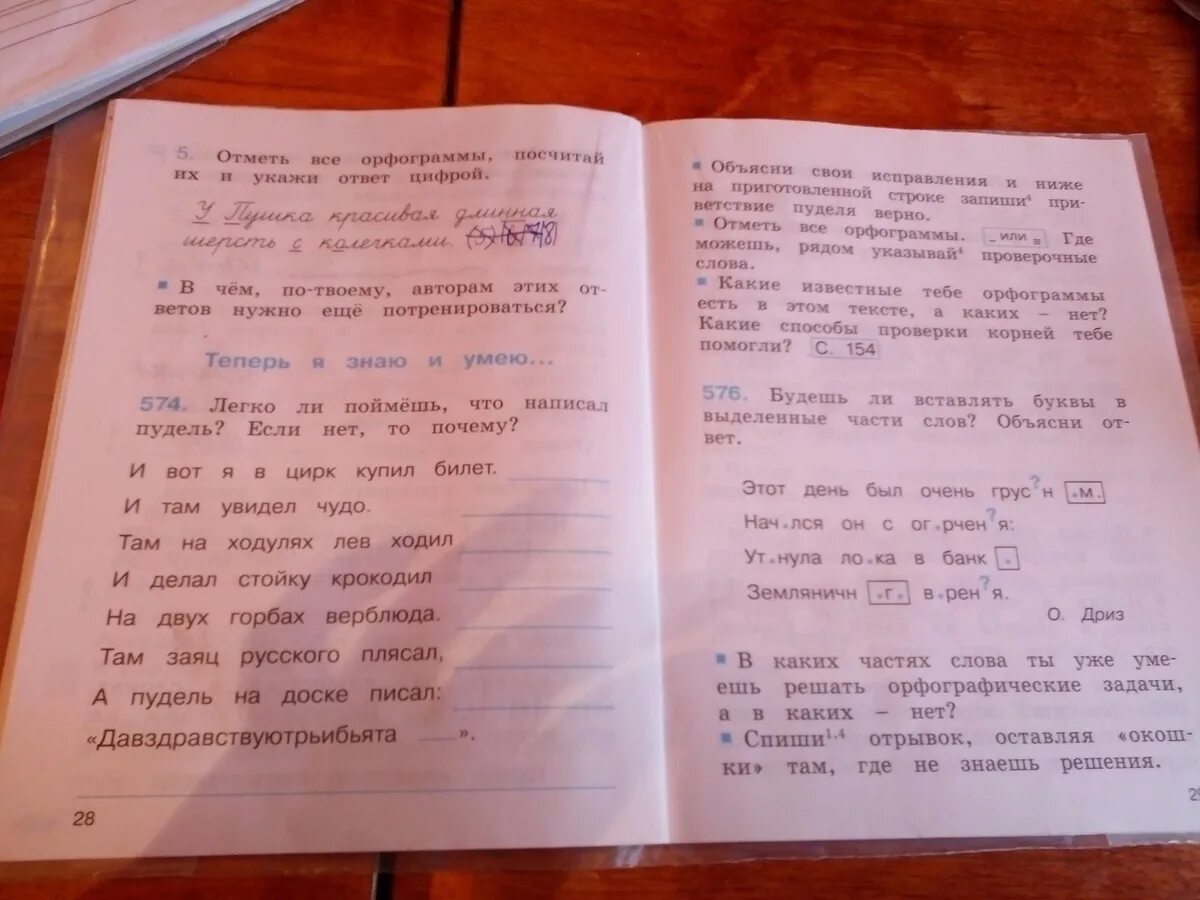 5. Отметь все орфограммы, посчитай
их и укажи ответ цифрой.
У Пушка красивая длинная
шерсть с колечками. (5) 6 7 8
▪ В чём, по-твоему, авторам этих от-
ветов нужно ещё потренироваться?
Теперь я знаю и умею...
574. Легко ли поймёшь, что написал
пудель? Если нет, то почему?
И вот я в цирк купил билет.
И там увидел чудо.
Там на ходулях лев ходил
И делал стойку крокодил
На двух горбах верблюда.
Там заяц русского плясал,
А пудель на доске писал:
«Давздравствуютрьибьята ___».
28
▪ Объясни свои исправления и ниже
на приготовленной строке запиши⁴ при-
ветствие пуделя верно.
▪ Отметь все орфограммы. – или = Где
можешь, рядом указывай⁴ проверочные
слова.
▪ Какие известные тебе орфограммы
есть в этом тексте, а каких – нет?
Какие способы проверки корней тебе
помогли? С. 154
576. Будешь ли вставлять буквы в
выделенные части слов? Объясни от-
вет.
Этот день был очень грус?н .м.
Нач.лся он с ог.рчен?я:
Ут.нула ло.ка в банк .
Земляничн .г. в.рен?я.
О. Дриз
▪ В каких частях слова ты уже уме-
ешь решать орфографические задачи,
а в каких – нет?
▪ Спиши¹·⁴ отрывок, оставляя «окош-
ки» там, где не знаешь решения.